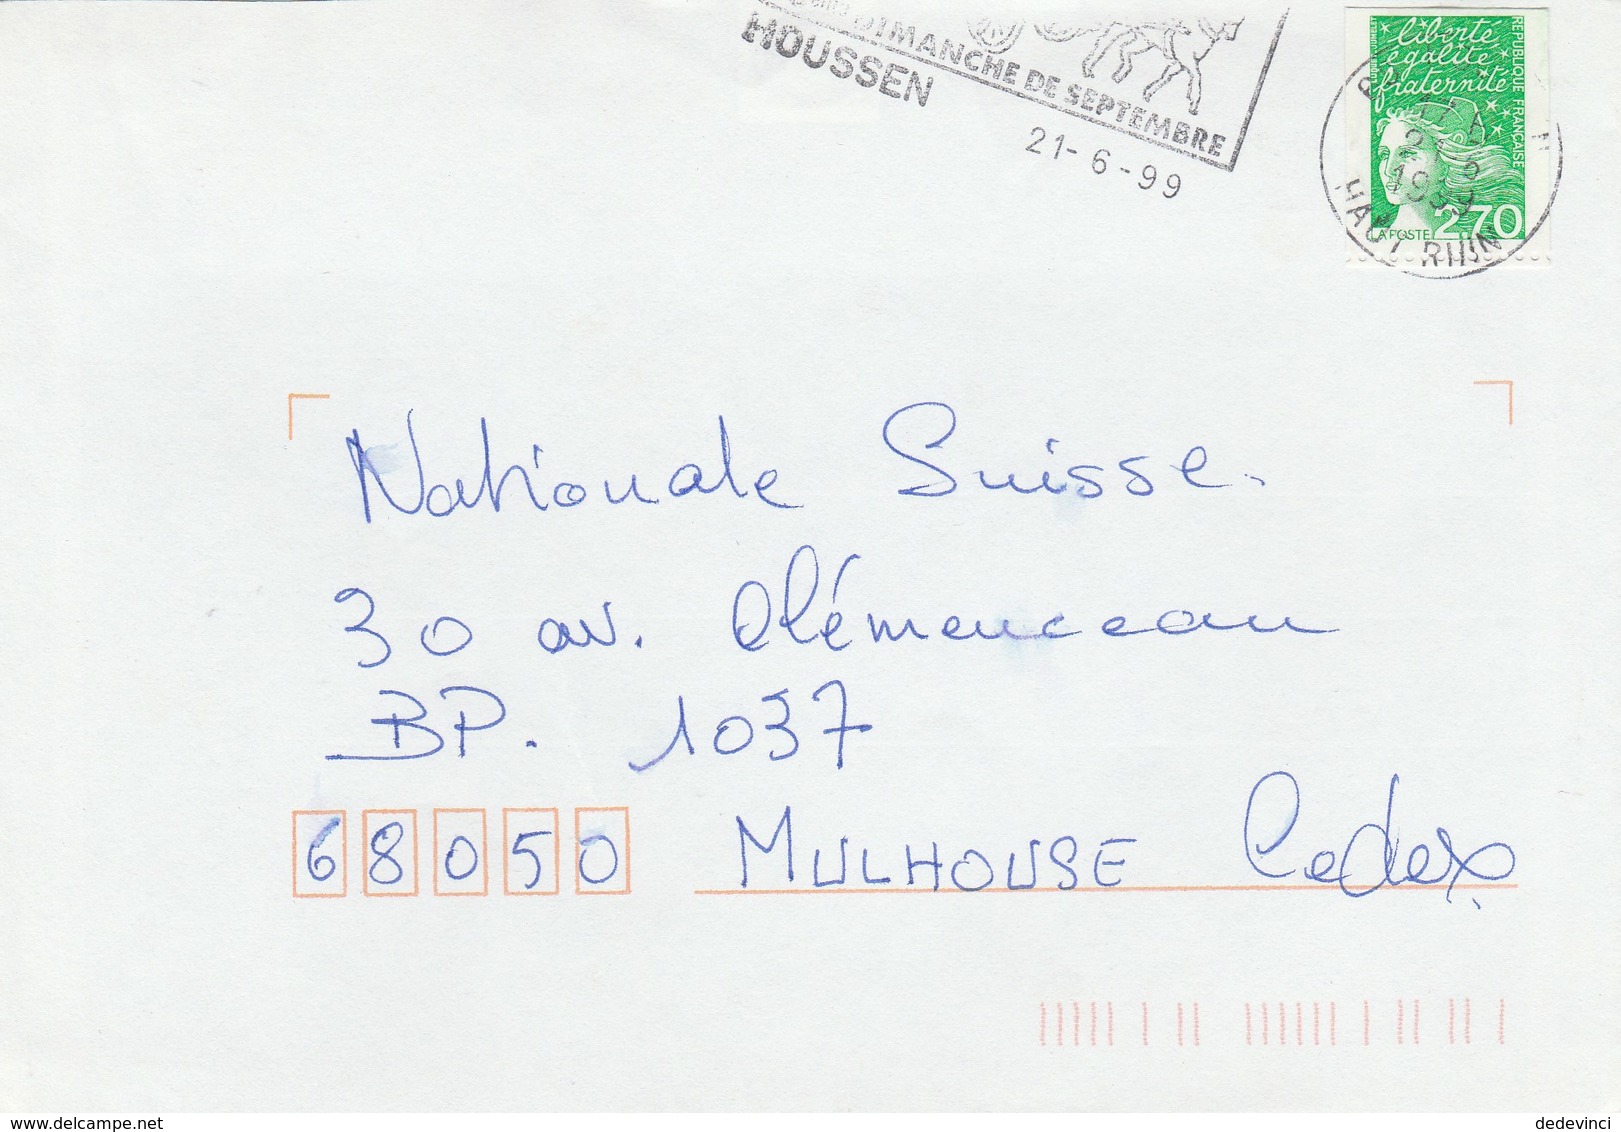 DIMANCHE DE SEPTEMBRE
HOUSSEN
21-6-99
liberté
égalité
fraternité
REPUBLIQUE FRANÇAISE
LA POSTE 2,70
1999
HAUT RHIN
Nationale Suisse.
30 av. Clémenceau
BP. 1037
68050 MULHOUSE Cedex
delcampe.net
dedevinci